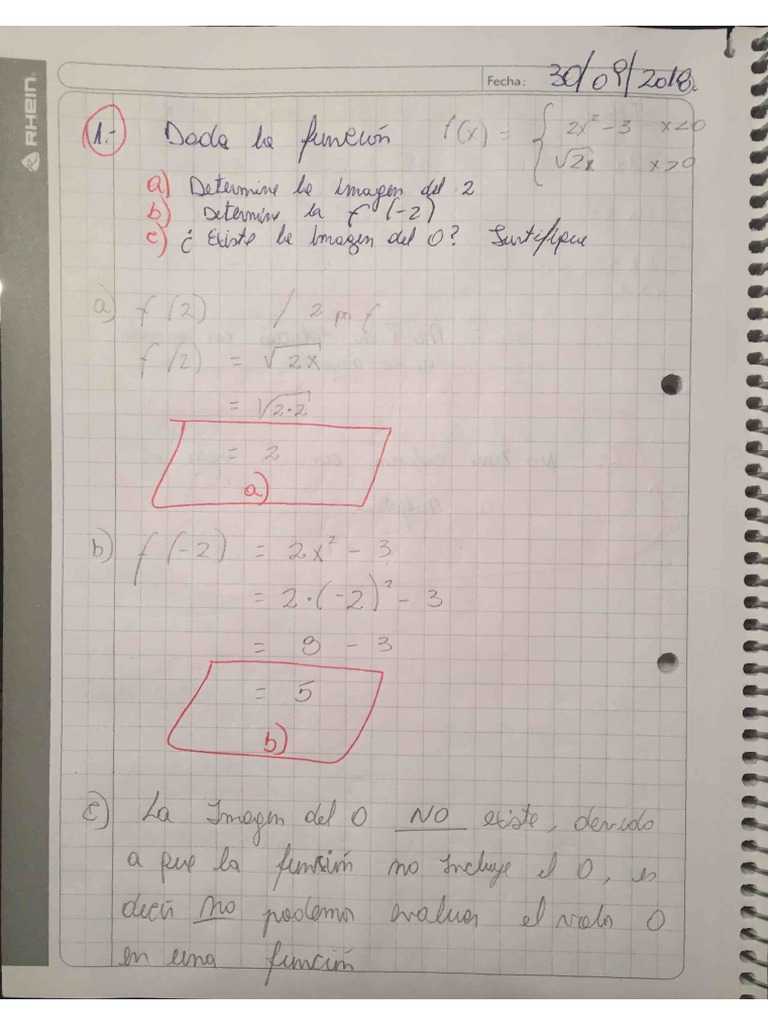 RHEIN
Fecha: 30/09/2018
1.- Dada la función f(x) = { 2x² - 3 x<0
√2x x>0
a) Determine la Imagen del 2
b) Determine la f(-2)
c) ¿Existe la Imagen del 0? Justifique
a) f(2) / 2 por f
f(2) = √2x
= √2·2
= 2
a)
b) f(-2) = 2x² - 3
= 2·(-2)² - 3
= 8 - 3
= 5
b)
c) La Imagen del 0 NO existe, devido
a que la función no Incluye el 0, es
decir no podemos evaluar el valor 0
en una función